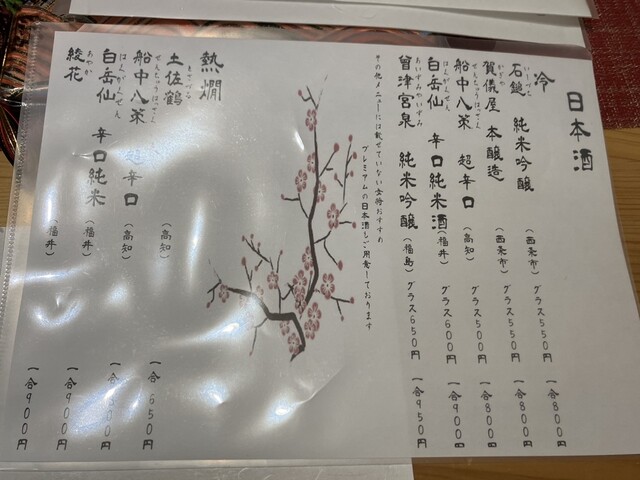 日本酒
冷
石鎚 純米吟醸 (西条市) グラス550円 一合800円
いしづち
賀儀屋 本醸造 (西条市) グラス550円 一合800円
かぎや
船中八策 超辛口 (高知) グラス500円 一合800円
せんちゅうはっさく
白岳仙 辛口純米酒 (福井) グラス600円 一合900円
はくがくせん
會津宮泉 純米吟醸 (福島) グラス650円 一合950円
あいづみやいずみ
その他メニューには載せていない女将おすすめ
プレミアムの日本酒もご用意しております
熱燗
土佐鶴 (高知) 一合650円
とさづる
船中八策 超辛口 (高知) 一合
せんちゅうはっさく
白岳仙 辛口純米 (福井) 一合900円
はくがくせん
綾花 (福井) 一合900円
あやか